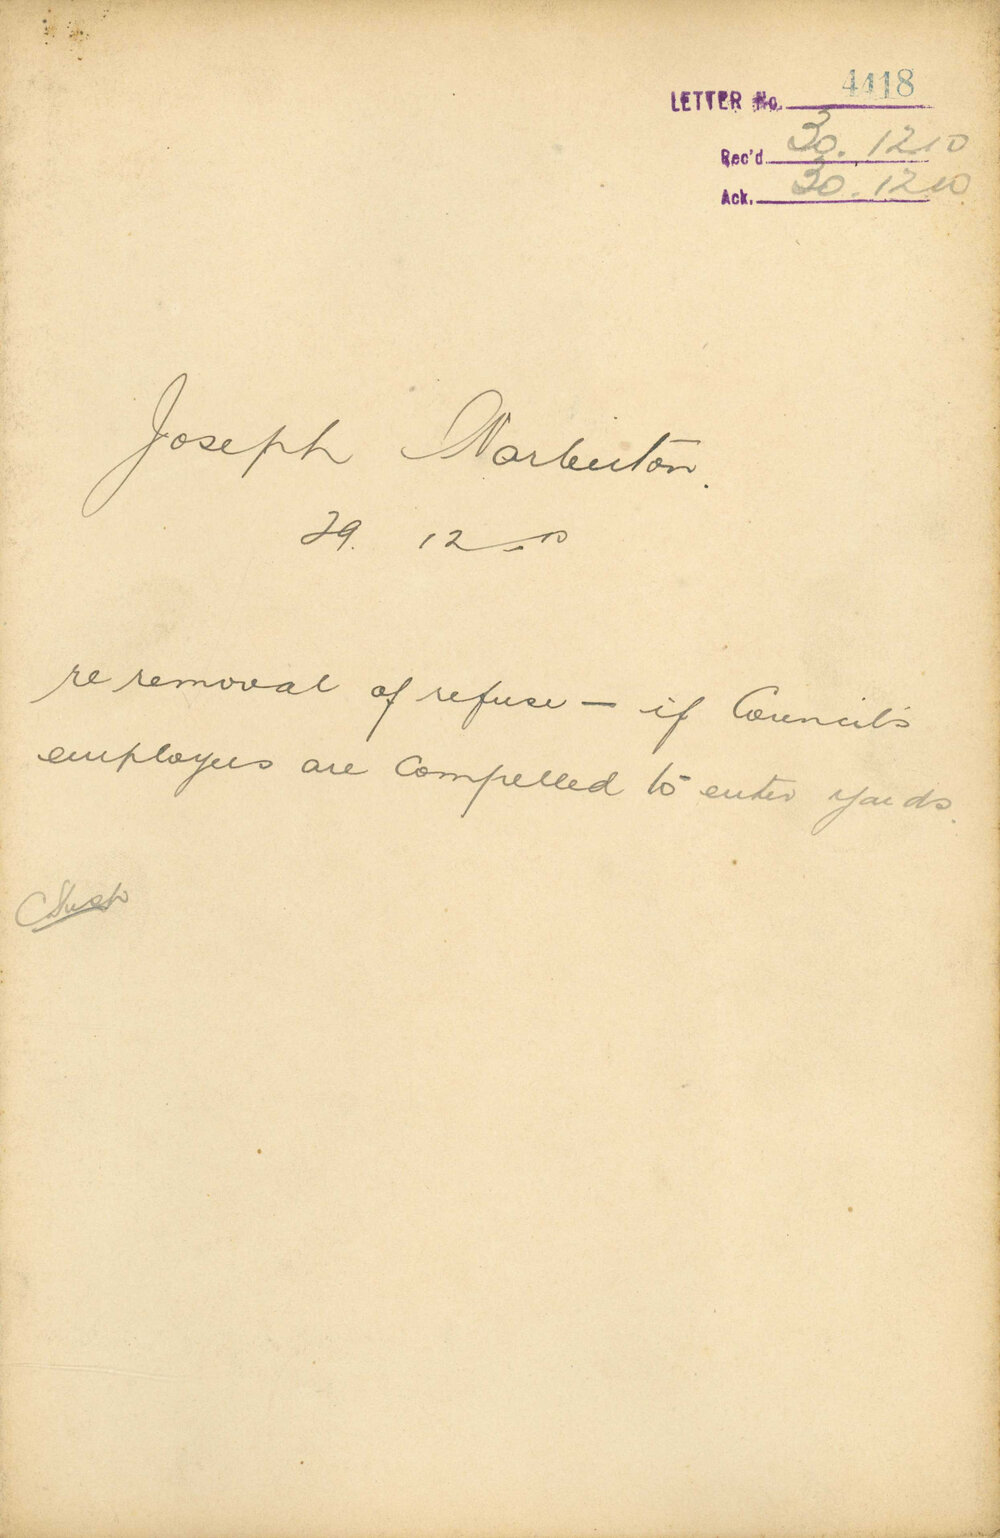 LETTER No. 4418
Rec'd 30.12.10
Ack. 30.12.10
Joseph Warburton.
29. 12.10
re removal of refuse — if Council's
employees are compelled to enter yards.